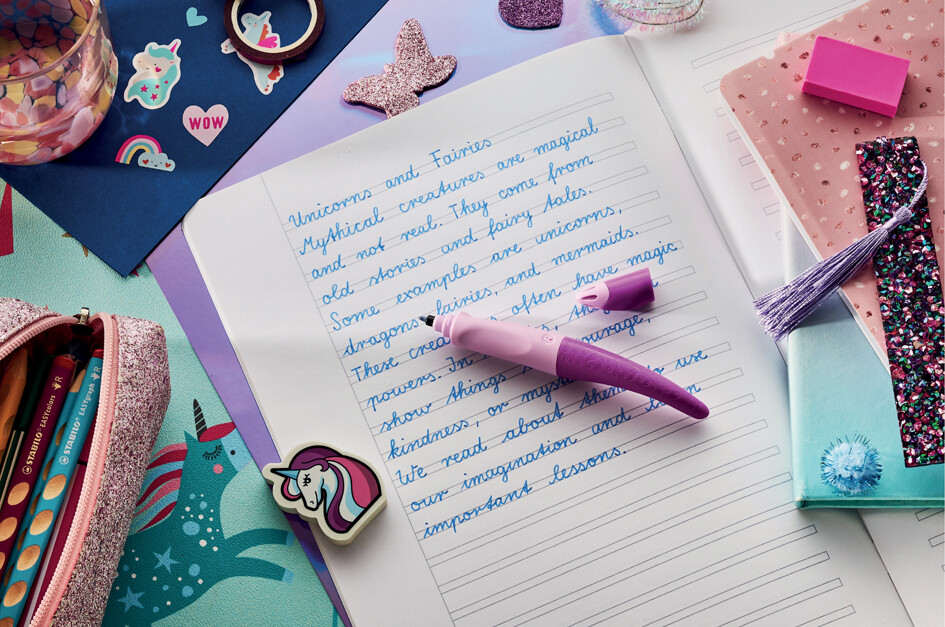 WOW
Unicorns and Fairies
Mythical creatures are magical
and not real. They come from
old stories and fairy tales.
Some examples are unicorns,
dragons, fairies, and mermaids.
These often have magic
powers. In
show things courage,
kindness, or
We read about them to use
our imagination and learn
important lessons.
STABILO EASYcolors R
STABILO EASYgraph R